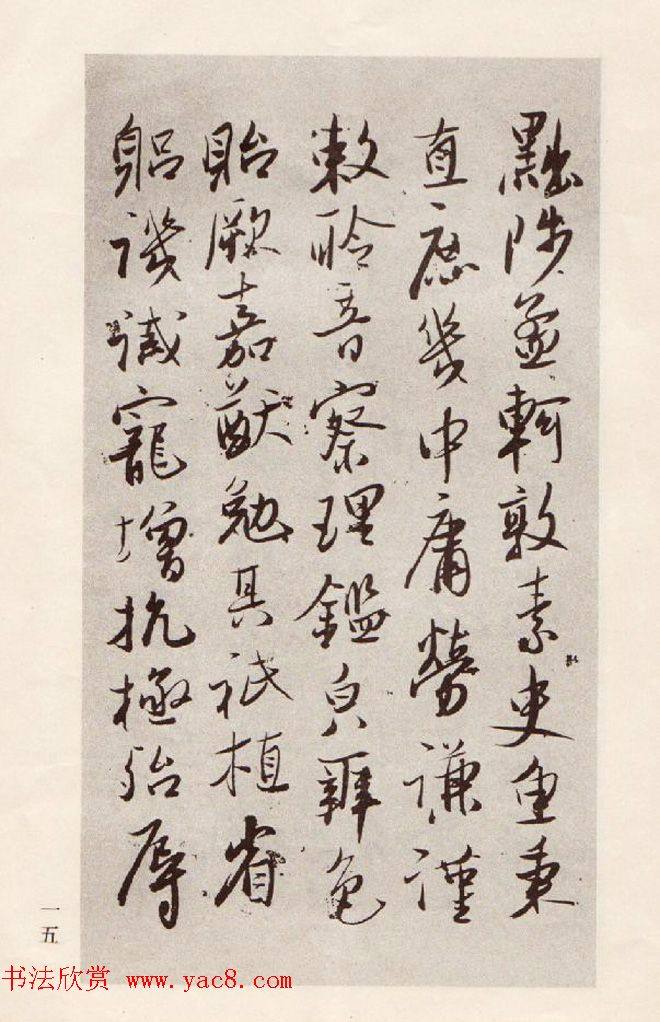 黜陟孟軻敦素史魚秉
直庶幾中庸勞謙謹
敕聆音察理鑑皃辨色
貽厥嘉猷勉其祗植省
躳譏誡寵增抗極殆辱
一五
书法欣赏 www.yac8.com